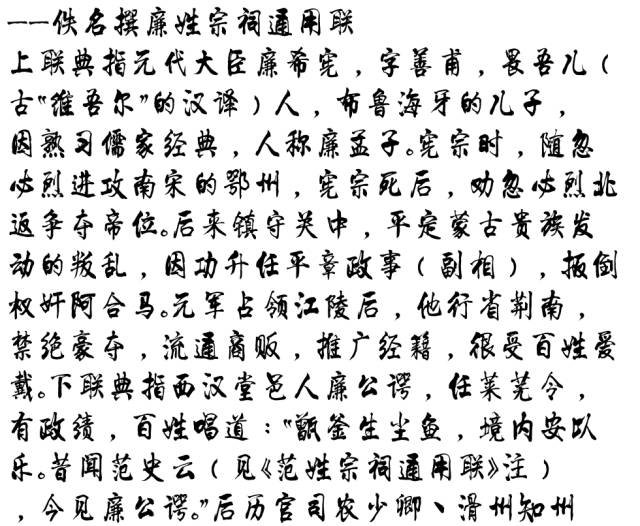 ——佚名撰廉姓宗祠通用联
上联典指元代大臣廉希宪，字善甫，畏吾儿（
古“维吾尔”的汉译）人，布鲁海牙的儿子，
因熟习儒家经典，人称廉孟子。宪宗时，随忽
必烈进攻南宋的鄂州，宪宗死后，劝忽必烈北
返争夺帝位。后来镇守关中，平定蒙古贵族发
动的叛乱，因功升任平章政事（副相），扳倒
权奸阿合马。元军占领江陵后，他行省荆南，
禁绝豪夺，流通商贩，推广经籍，很受百姓爱
戴。下联典指西汉堂邑人廉公谔，任莱芜令，
有政绩，百姓唱道：“甑釜生尘鱼，境内安以
乐。昔闻范史云（见《范姓宗祠通用联》注）
，今见廉公谔。”后历官司农少卿、滑州知州